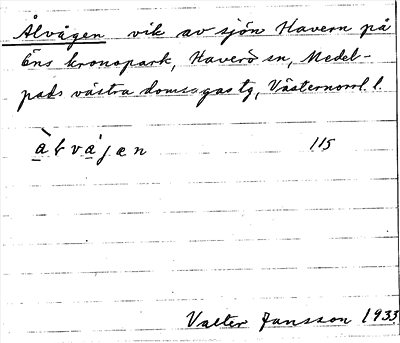 Ålvågen vik av sjön Havern på
Öns kronopark, Haverö sn, Medel-
pads västra domsagas tg, Västernorrl. l.
å̀lvǻjæn 115
Valter Jansson 1933